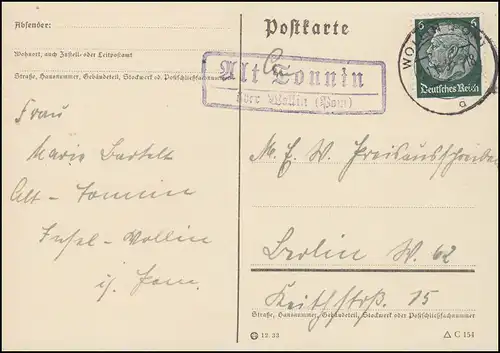 Absender:
Postkarte
Wohnort, auch Zustell- oder Leitpostamt
Straße, Hausnummer, Gebäudeteil, Stockwerk od. Postschließfachnummer
Alt Tonnin
über Wollin (Pom)
6 6
Deutsches Reich
WOLLIN
a
Frau
Marie Bartelt
Alt-Tonnin
Insel-Wollin
i/ Pom.
M. E. W. Preisausschreiben
Berlin W. 62
Keithstrß. 15
Straße, Hausnummer, Gebäudeteil, Stockwerk oder Postschließfachnummer
12. 33
C 154